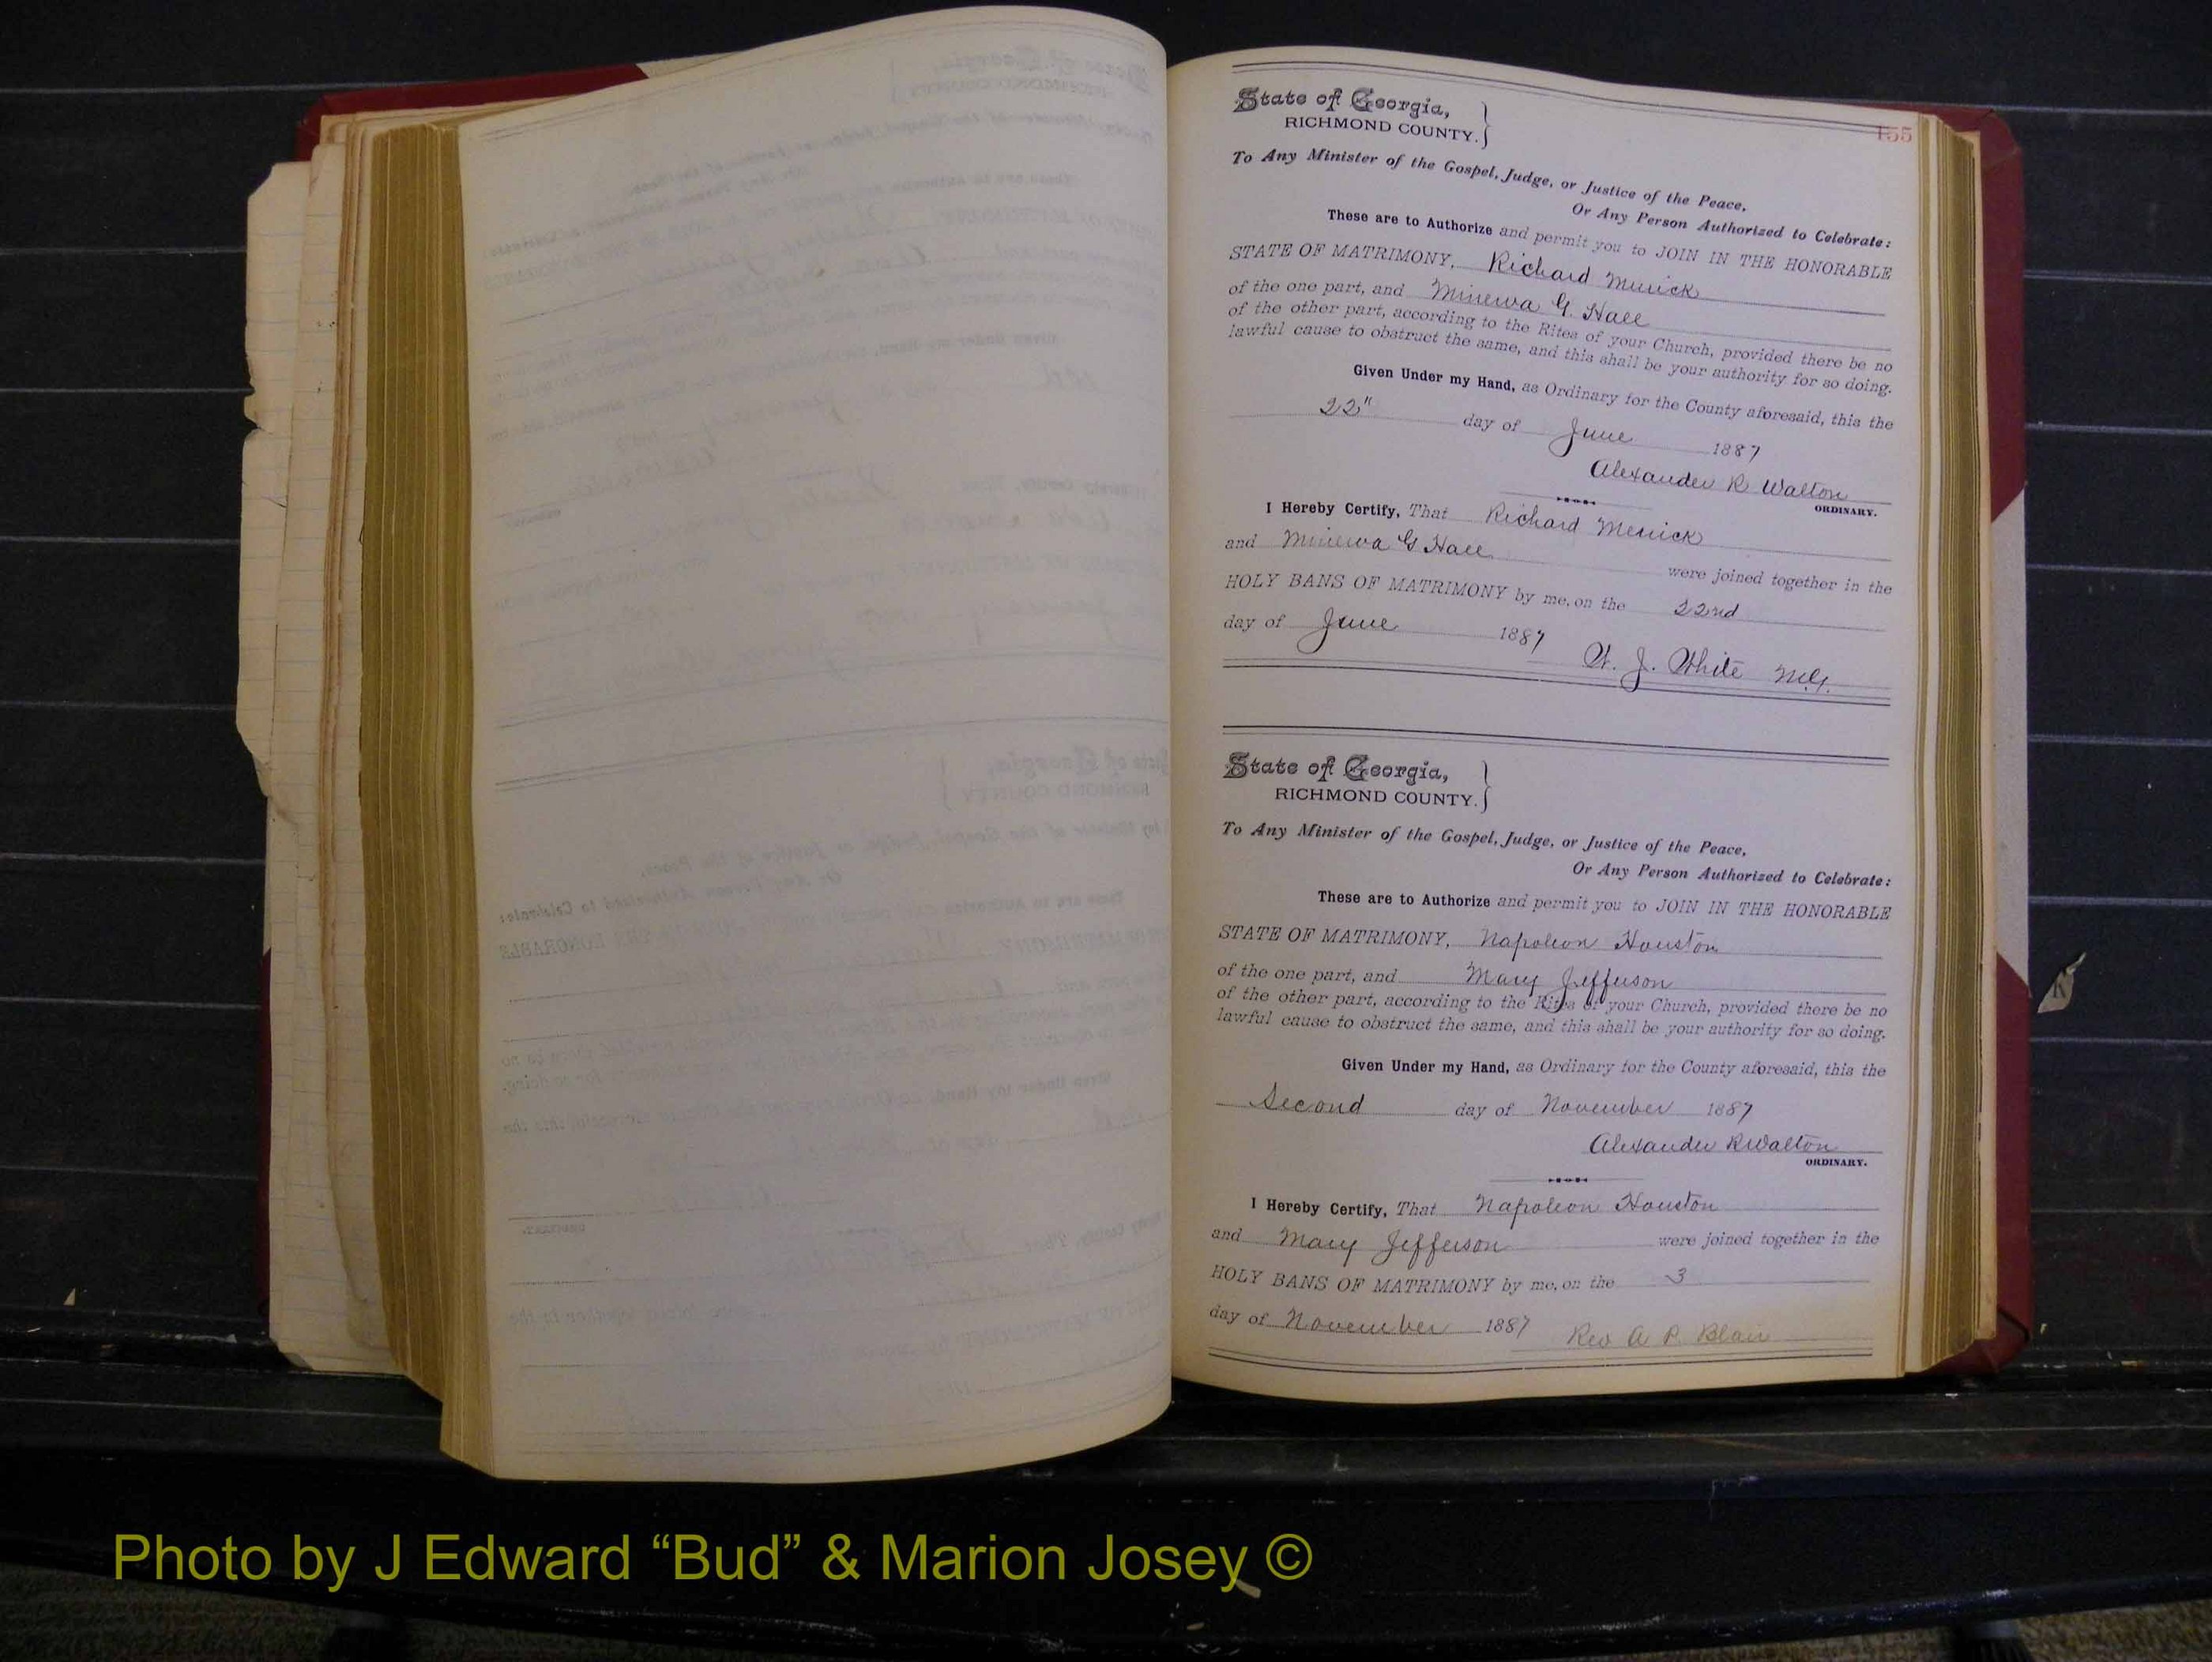 155
State of Georgia,
RICHMOND COUNTY.
To Any Minister of the Gospel, Judge, or Justice of the Peace,
Or Any Person Authorized to Celebrate:
These are to Authorize and permit you to JOIN IN THE HONORABLE
STATE OF MATRIMONY, Richard Merrick
of the one part, and Minerva G. Hall
of the other part, according to the Rites of your Church, provided there be no
lawful cause to obstruct the same, and this shall be your authority for so doing.
Given Under my Hand, as Ordinary for the County aforesaid, this the
22" day of June 1887
Alexander R Walton
ORDINARY.
I Hereby Certify, That Richard Merrick
and Minerva G Hall were joined together in the
HOLY BANS OF MATRIMONY by me, on the 22nd
day of June 1887
W. J. White M.G.
State of Georgia,
RICHMOND COUNTY.
To Any Minister of the Gospel, Judge, or Justice of the Peace,
Or Any Person Authorized to Celebrate:
These are to Authorize and permit you to JOIN IN THE HONORABLE
STATE OF MATRIMONY, Napoleon Houston
of the one part, and Mary Jefferson
of the other part, according to the Rites of your Church, provided there be no
lawful cause to obstruct the same, and this shall be your authority for so doing.
Given Under my Hand, as Ordinary for the County aforesaid, this the
Second day of November 1887
Alexander R Walton
ORDINARY.
I Hereby Certify, That Napoleon Houston
and Mary Jefferson were joined together in the
HOLY BANS OF MATRIMONY by me, on the 3
day of November 1887 Rev A P. Blair
Photo by J Edward “Bud” & Marion Josey ©